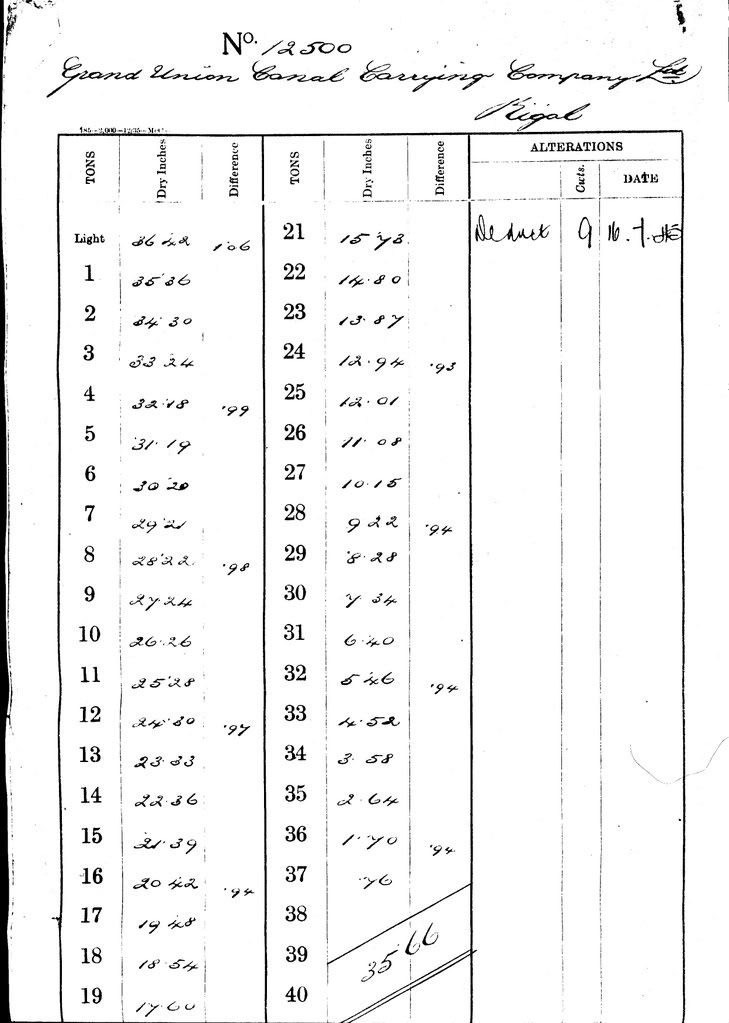 No. 12500
Grand Union Canal Carrying Company Ltd
Rigal
TONS Dry Inches Difference TONS Dry Inches Difference ALTERATIONS
Cwts. DATE
Light 36 42 1.06 21 15.73 Deduct 9
1 35.36 22 14.80
2 34.30 23 13.87
3 33 24 24 12.94 .93
4 32.18 .99 25 12.01
5 31.19 26 11.08
6 30 20 27 10.15
7 29.21 28 9 22 .94
8 28.22 .98 29 8.28
9 27.24 30 7 34
10 26.26 31 6.40
11 25.28 32 5.46 .94
12 24.30 .97 33 4.52
13 23.33 34 3.58
14 22.36 35 2.64
15 21.39 36 1.70 .94
16 20 42 .94 37 .76
17 19.48 38
18 18.54 39 35.66
19 17.60 40